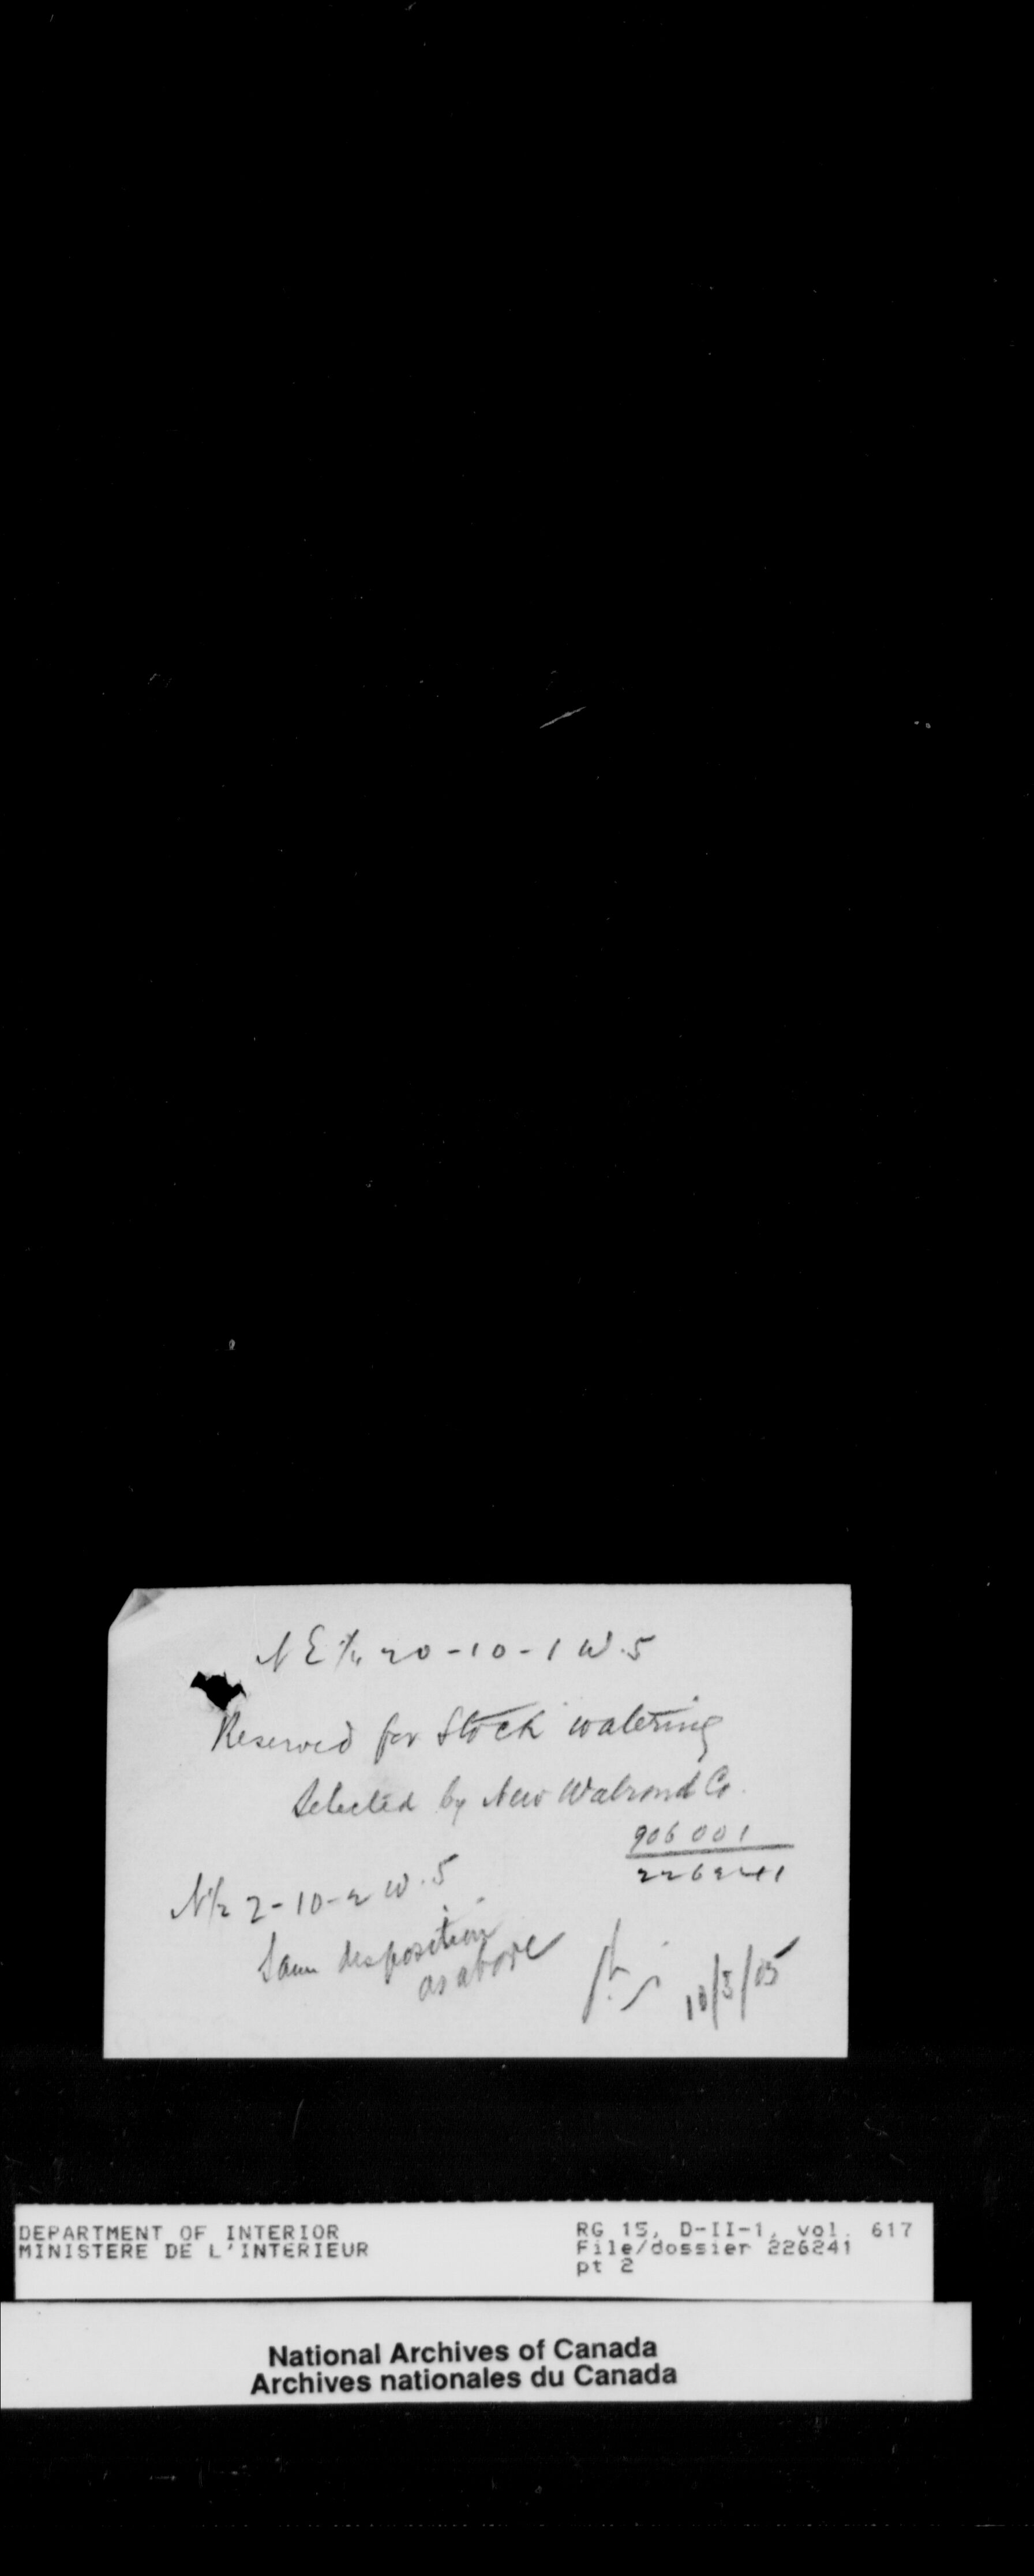 N E ¼ 20-10-1 W.5
Reserved for Stock watering
Selected by New Walrond Co.
906001
226241
N½ 2-10-2 W.5
Same disposition
as above
10/3/05
DEPARTMENT OF INTERIOR
MINISTERE DE L'INTERIEUR
RG 15, D-II-1, vol. 617
File/dossier 226241
pt 2
National Archives of Canada
Archives nationales du Canada